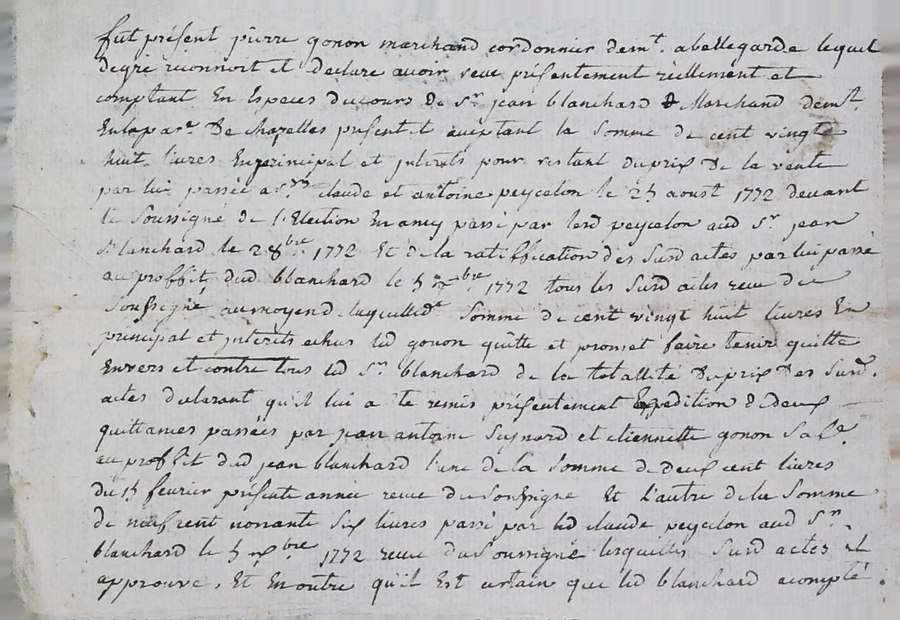 fut présent pierre gonon marchand cordonnier demt. a bellegarde lequel
de gré reconnoit et declare avoir receu présentement réellement et
comptant En Especes du cours de Sr. jean blanchard Marchand demt.
En la par. De chazelles présent et aceptant la Somme de cent vingt
huit livres En principal et jnterets pour restant du prix De la vente
par lui passée a Srs claude et antoine peycelon le 25 aoust 1772 devant
le Soussigné de l'Election En amy passé par led peycelon aud Sr. jean
Blanchard le 2 8bre 1772 Et de la ratiffication des Surd actes par lui passé
au proffit dud blanchard le 5 xbre 1772 tous les Surd actes receu du
Soussigné au moyend laquelled Somme de cent vingt huit livres En
principal et jnterets echus led gonon quitte et promet faire tenir quitte
Envers et contre tous led Sr. blanchard de la totallité du prix des Surd.
actes declarant qu'il lui a ete remis présentement Expedition de deux
quittances passées par jean antoine Seynard et etiennette gonon Sa fe.
au proffit dud jean blanchard l'une de la Somme de deux cent livres
du 15 fevrier présente année receue du Soussigné Et l'autre de la Somme
de neuf cent nonante Six livres passé par led claude peycelon aud Sr.
blanchard le 5 xbre 1772 receue du Soussigné lesquelles Surd actes il
approuve, Et En outre qu'il Est certain que led blanchard a compté